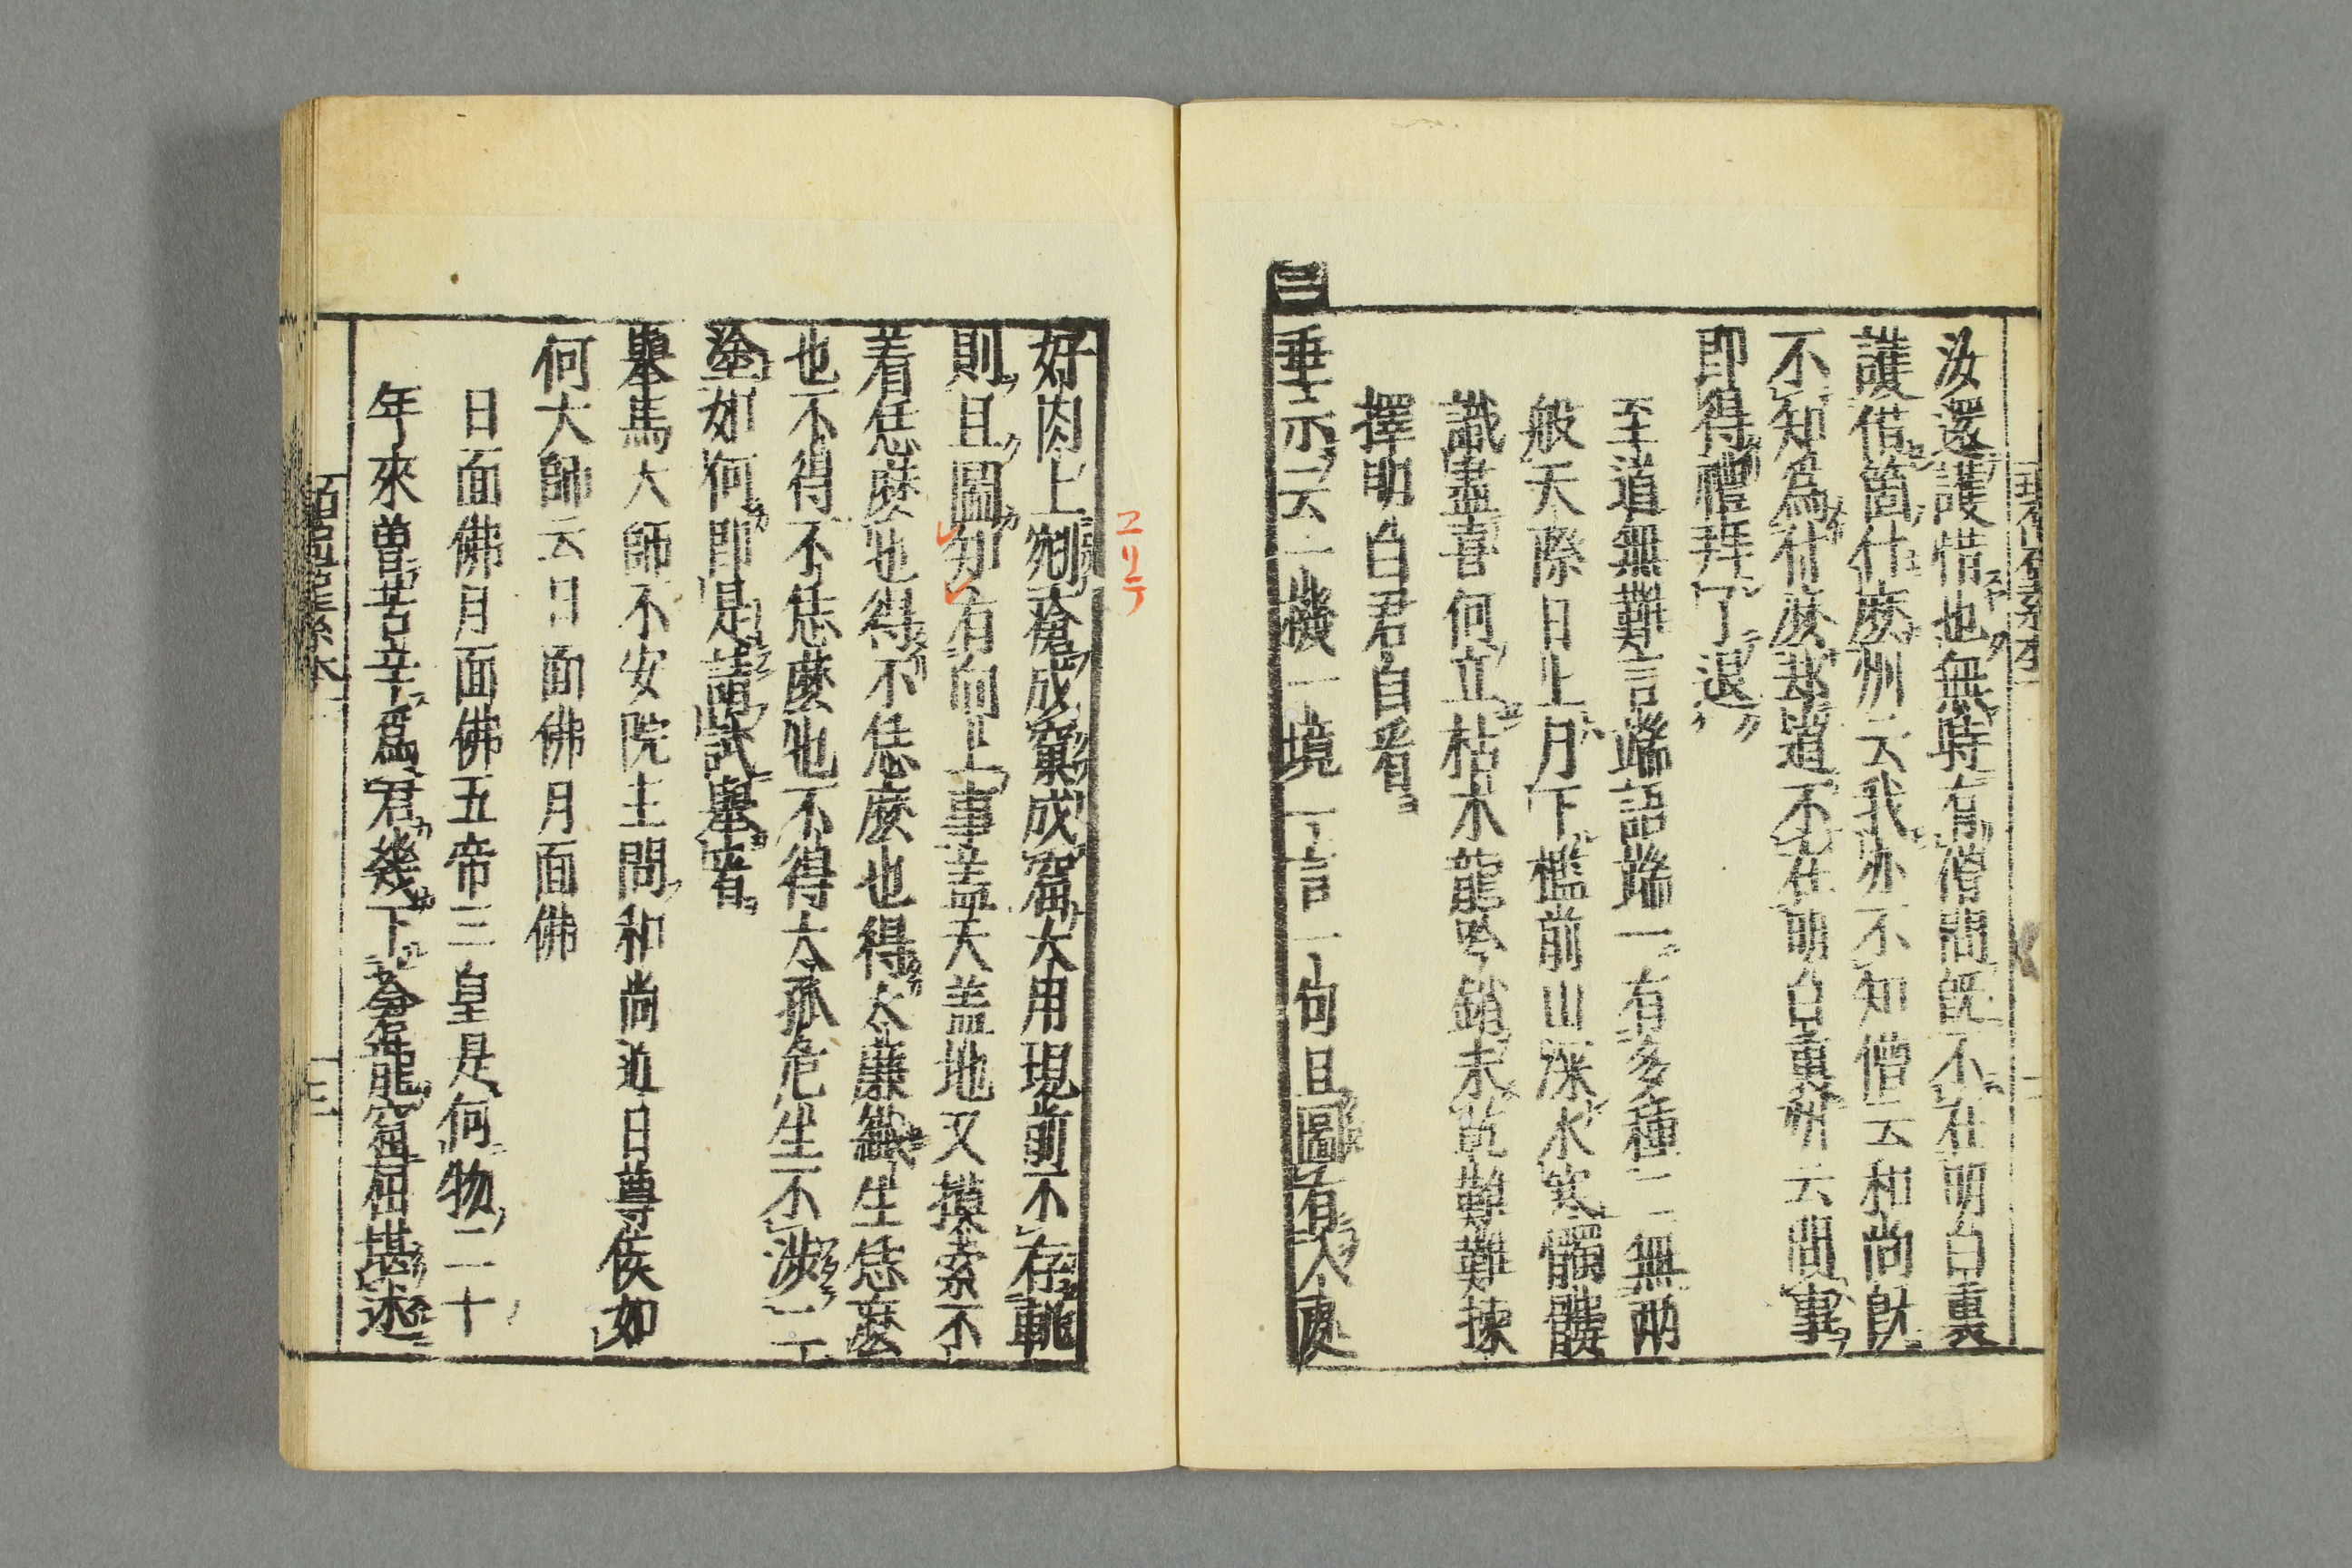 汝還護惜也無時有僧問既不在明白裏
護惜箇什麽州云我亦不知僧云和尚既
不知爲什麽却道不在明白裏州云問事
即得禮拜了退
至道無難言端語端一有多種二無兩
般天際日上月下檻前山深水寒髑髏
識盡喜何立枯木龍吟銷未乾難難揀
擇明白君自看
三
垂示云一機一境一言一句且圖有入處
コリテ
好肉上剜瘡成窠成窟大用現前不存軌
則且圖知有向上事盖天盖地又摸索不
着恁麽也得不恁麽也得太廉纎生恁麽
也不得不恁麽也不得太孤危生不涉二
塗如何即是請試擧看
擧馬大師不安院主問和尚近日尊候如
何大師云日面佛月面佛
日面佛月面佛五帝三皇是何物二十
年來曽苦辛爲君幾下蒼龍窟屈堪述